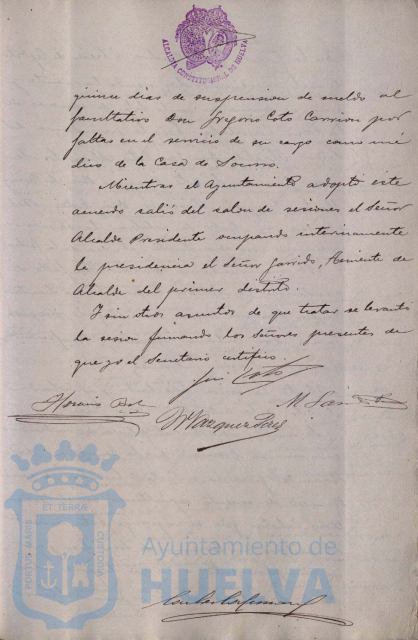 ALCALDIA CONSTITUCIONAL DE HUELVA
quince dias de suspension de sueldo al
facultativo Don Gregorio Coto Carrion por
faltas en el servicio de su cargo como mé
dico de la Casa de Socorro.
Mientras el Ayuntamiento adoptó este
acuerdo salió del salon de sesiones el Señor
Alcalde Presidente ocupando interinamente
la presidencia el Señor Garrido, Teniente de
Alcalde del primer distrito.
Y sin otros asuntos de que tratar se levantó
la sesion firmando los Señores presentes de
que yo el Secretario certifico.
Coto
Horacio Bel
M
M Vazquez
PORTUS MARIS ET TERRÆ CUSTODIA
Ayuntamiento de
HUELVA